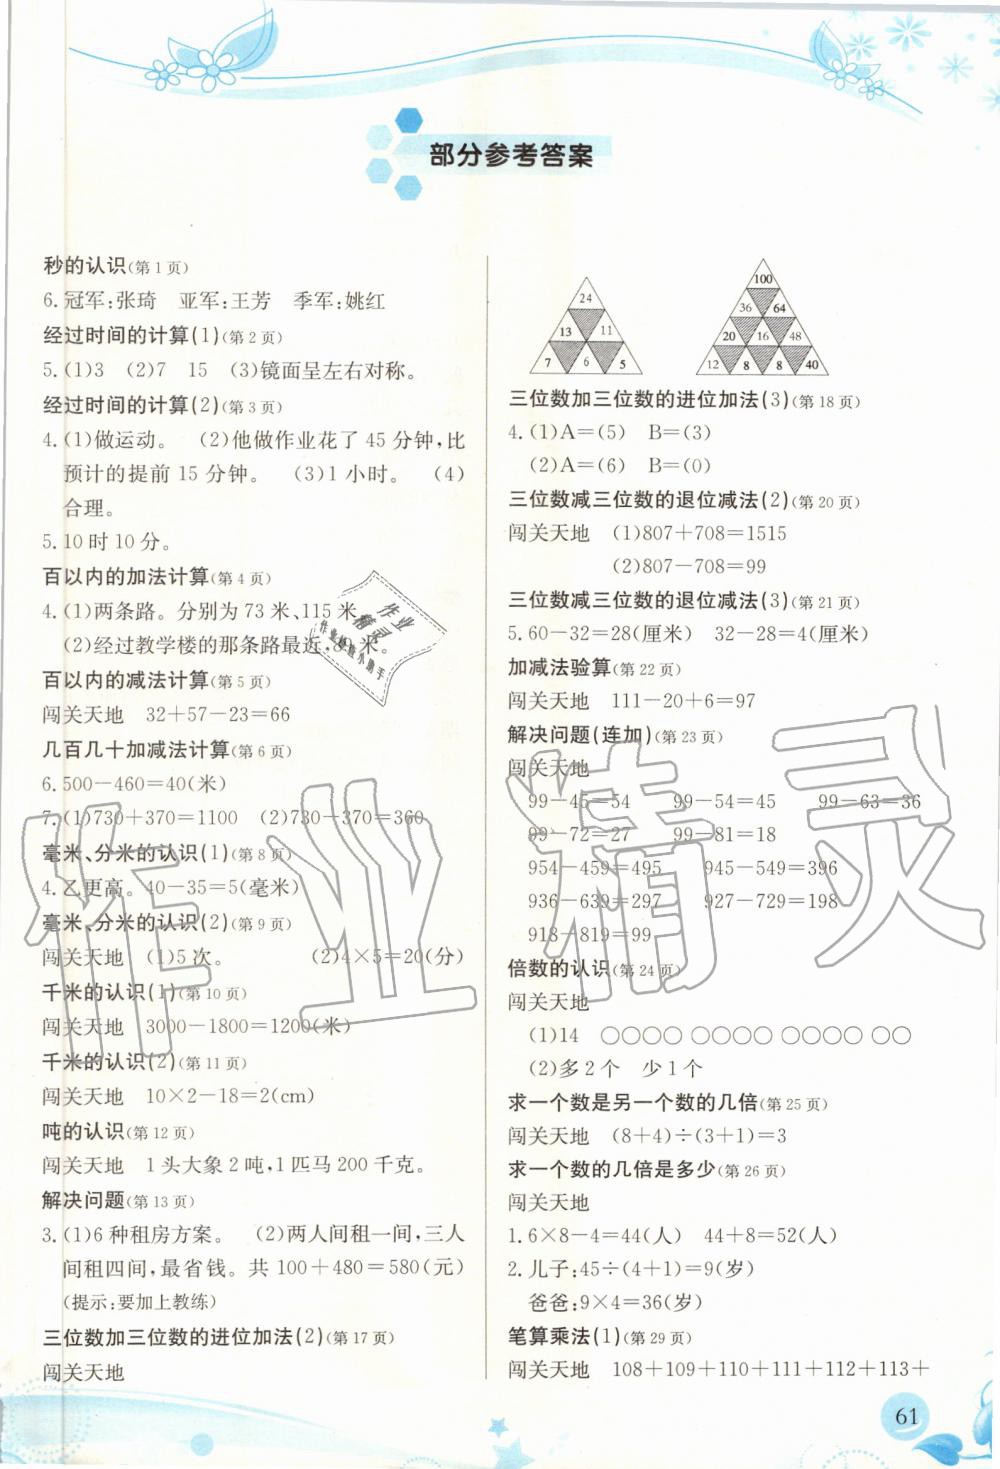 部分参考答案
秒的认识(第1页)
6.冠军:张琦　亚军:王芳　季军:姚红
经过时间的计算(1)(第2页)
5.(1)3　(2)7　15　(3)镜面呈左右对称。
经过时间的计算(2)(第3页)
4.(1)做运动。　(2)他做作业花了45分钟,比
预计的提前15分钟。　(3)1小时。　(4)
合理。
5.10时10分。
百以内的加法计算(第4页)
4.(1)两条路。分别为73米、115米
(2)经过教学楼的那条路最近,
百以内的减法计算(第5页)
闯关天地　32+57-23=66
几百几十加减法计算(第6页)
6.500-460=40(米)
7.(1)730+370=1100　(2)730-370=360
毫米、分米的认识(1)(第8页)
4.乙更高。40-35=5(毫米)
毫米、分米的认识(2)(第9页)
闯关天地　(1)5次。　(2)4×5=20(分)
千米的认识(1)(第10页)
闯关天地　3000-1800=1200(米)
千米的认识(2)(第11页)
闯关天地　10×2-18=2(cm)
吨的认识(第12页)
闯关天地　1头大象2吨,1匹马200千克。
解决问题(第13页)
3.(1)6种租房方案。　(2)两人间租一间,三人
间租四间,最省钱。共100+480=580(元)
(提示:要加上教练)
三位数加三位数的进位加法(2)(第17页)
闯关天地
24
13　11
7　6　5
100
36　64
20　16　48
12　8　8　40
三位数加三位数的进位加法(3)(第18页)
4.(1)A=(5)　B=(3)
(2)A=(6)　B=(0)
三位数减三位数的退位减法(2)(第20页)
闯关天地　(1)807+708=1515
(2)807-708=99
三位数减三位数的退位减法(3)(第21页)
5.60-32=28(厘米)　32-28=4(厘米)
加减法验算(第22页)
闯关天地　111-20+6=97
解决问题(连加)(第23页)
闯关天地
99-45=54　99-54=45　99-63=36
99-72=27　99-81=18
954-459=495　945-549=396
936-639=297　927-729=198
918-819=99
倍数的认识(第24页)
闯关天地
(1)14　○○○○ ○○○○ ○○○○ ○○
(2)多2个　少1个
求一个数是另一个数的几倍(第25页)
闯关天地　(8+4)÷(3+1)=3
求一个数的几倍是多少(第26页)
闯关天地
1.6×8-4=44(人)　44+8=52(人)
2.儿子:45÷(4+1)=9(岁)
爸爸:9×4=36(岁)
笔算乘法(1)(第29页)
闯关天地　108+109+110+111+112+113+
61
作业精灵
作业
精灵
作业检查小助手